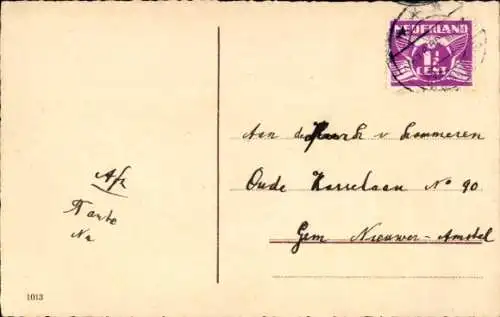 NEDERLAND
1½
CENT
Aan de Heer v Lommeren
Oude Karselaan No 90
Gem Nieuwer-Amstel
Afz
Tante
Na
1013